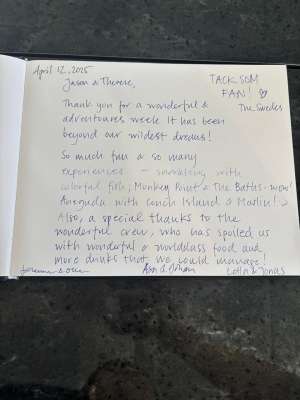 April 12, 2025
Jason & Therese,
TACK SOM
FAN! ♡
The Swedes
Thank you for a wonderful &
adventoures week. It has been
beyond our wildest dreams!
So much fun & so many
experiences - snorkling with
colorful fish, Monkey Point & The Baths - wow!
Anegada with Conch Island & Marlin!
Also, a special thanks to the
wonderful crew, who has spoiled us
with wonderful & worldclass food and
more drinks that we could manage!
Ann & Johan
Lotta & Jonas